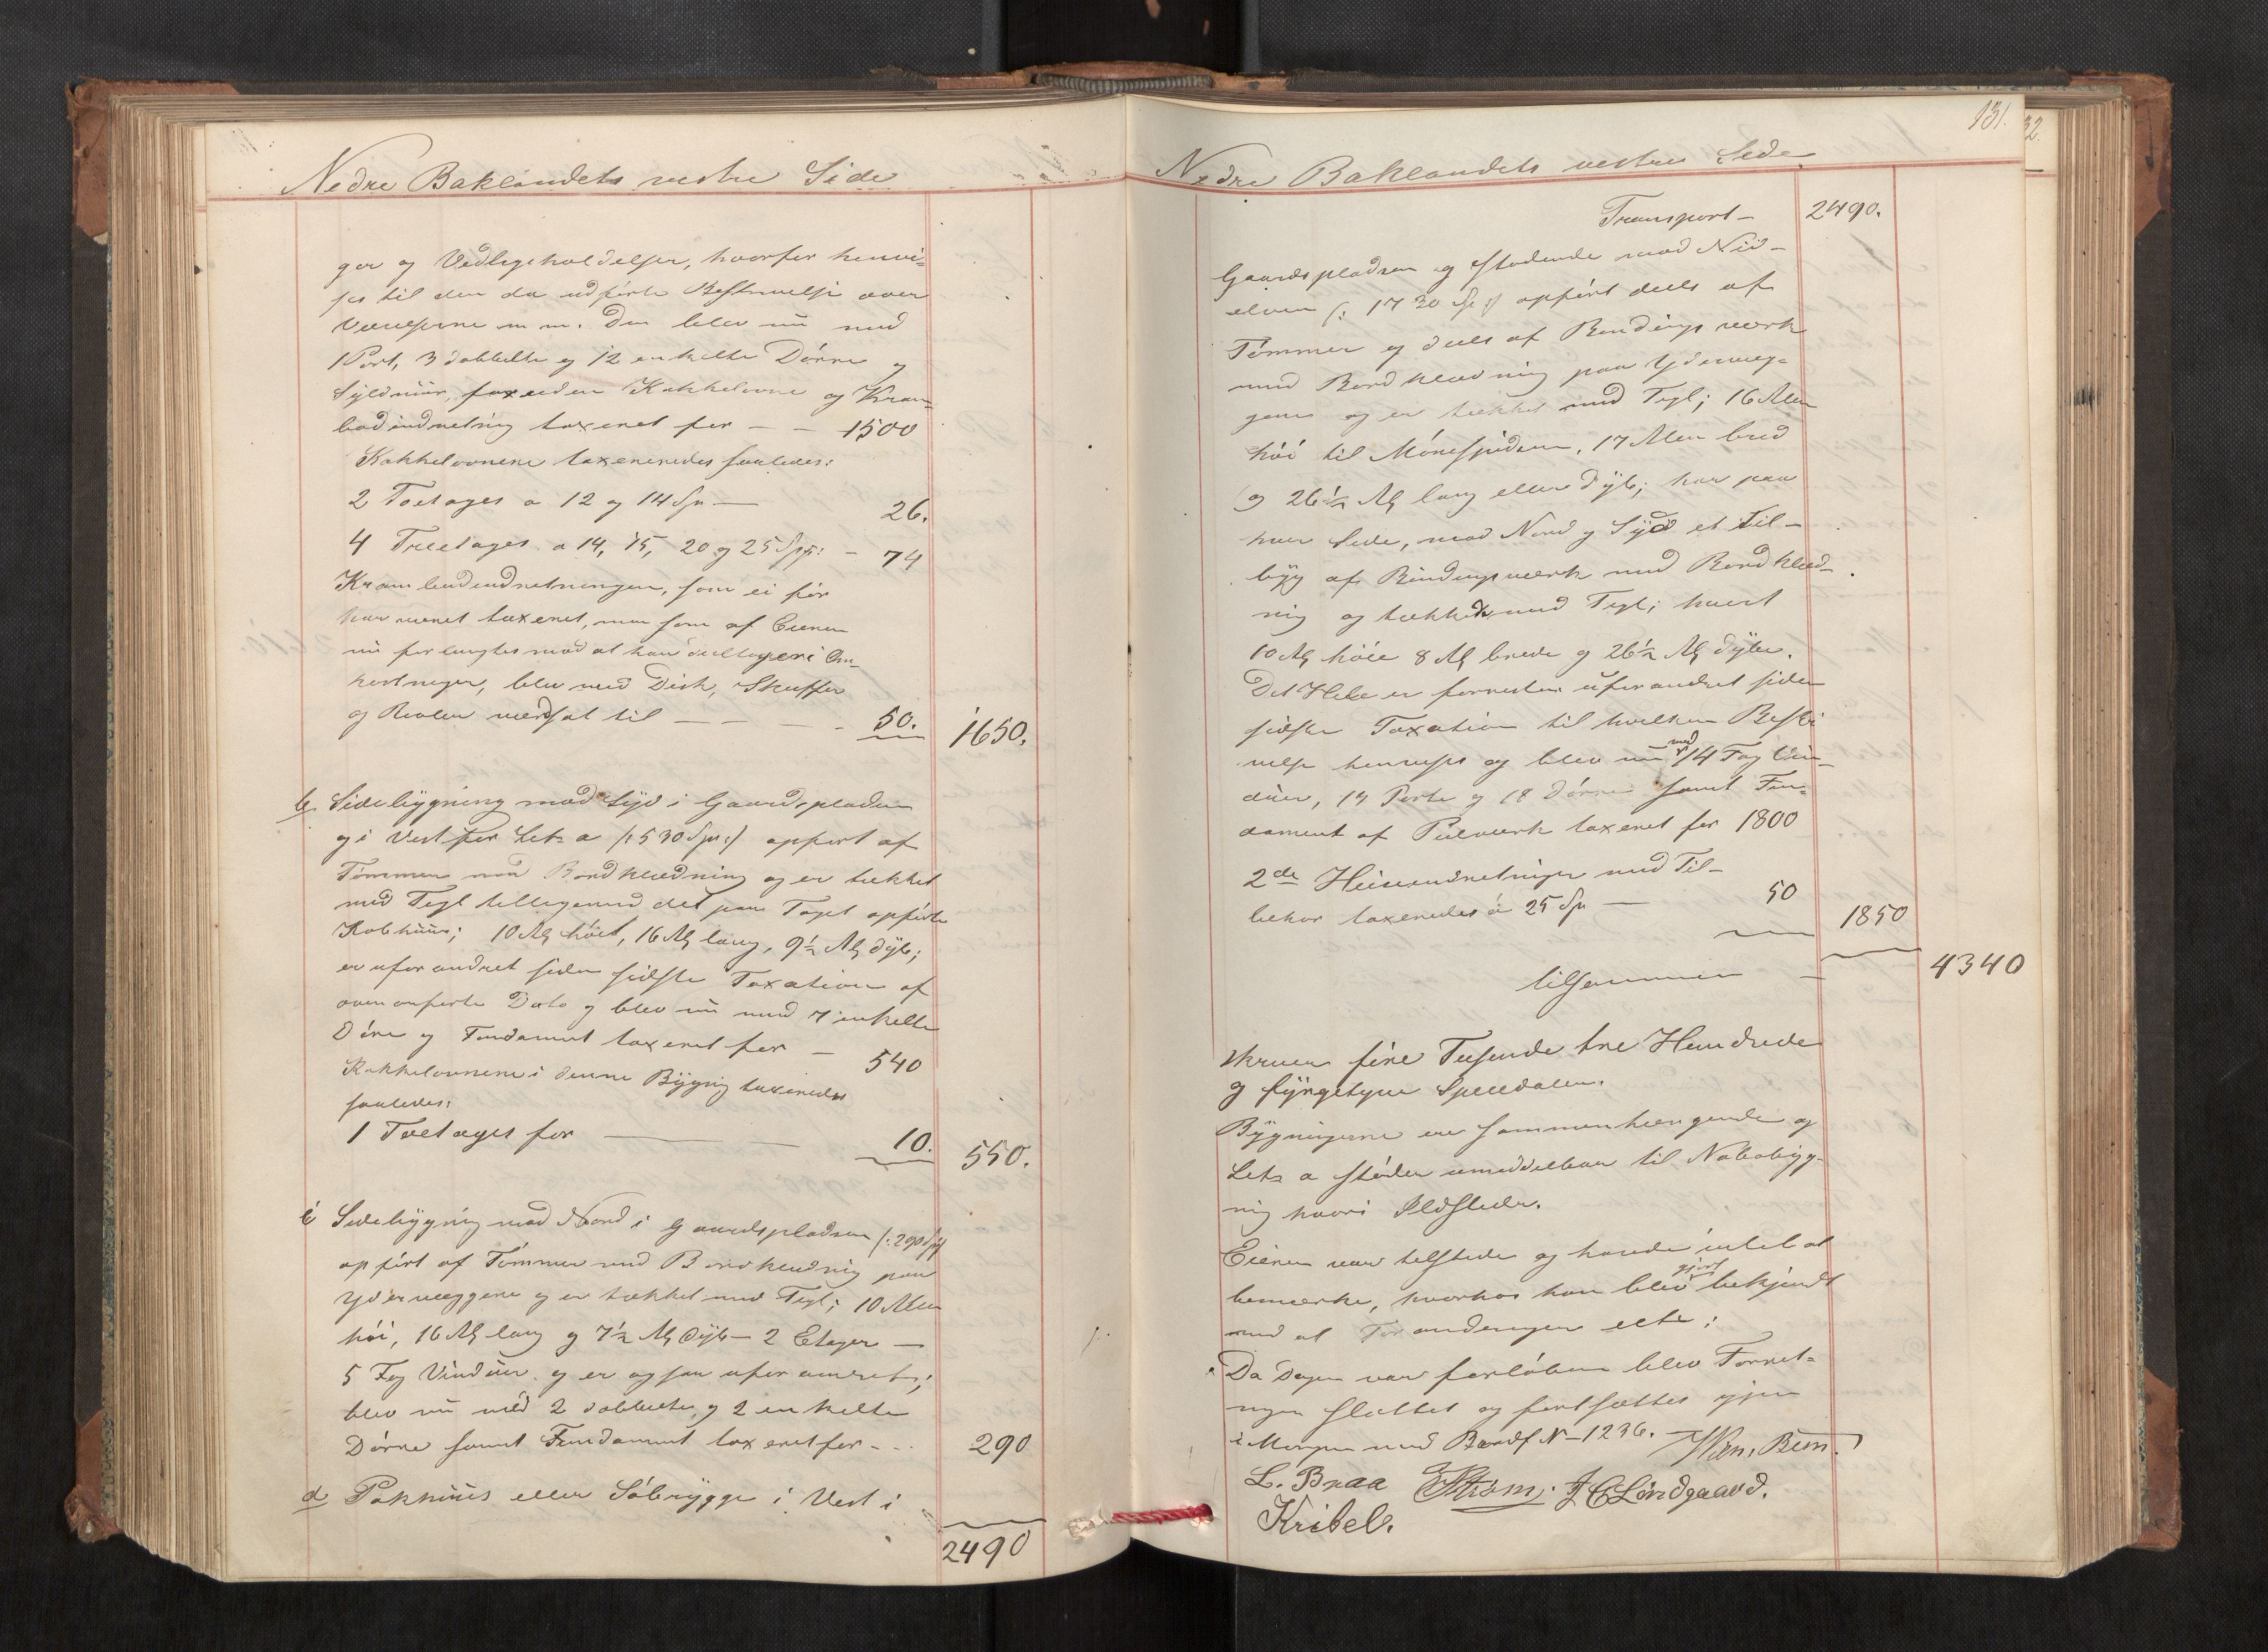 Nedre Baklandets vestre Side
ger og Vedligeholdelser, hvorfor henvi-
ses til den da udførte Beskrivelse over
Værelserne m m. Den blev nu med
1 Port, 3 dobbelte og 12 enkelte Dörre og
Syldmúr, foruden Kakkelovne og Kram-
bodindretning taxeret for - - 1500
Kakkelovnene taxeredes saaledes:
2 Toetages a 12 og 14 Sp - 26.
4 Treetages a 14, 15, 20 og 25 Spd: - 74
Krambodindretningen, som ei för
har været taxeret, men som af Eieren
nu forlangtes mod at han deeltager i Om-
kostninger, blev med Disk, Skuffer
og Reoler værdsat til - - - - 50. 1650.
b Sidebygning mod Syd i Gaardspladsen
og i Vest for Litr a (: 530 Spd :) opført af
Tømmer med Bordklædning og er tækket
med Tegl tilligemed det paa Taget opførte
Kobhuus; 10 Al höit, 16 Al lang, 9 1/2 Al dyb;
er uforandret siden sidste Taxation af
ovenanførte Dato og blev nu med 7 enkelte
Döre og Fundament taxeret for - 540
Kakkelovnene i denne Bygning taxeredes
saaledes:
1 Toetages for - - 10. 550.
c Sidebygning mod Nord i Gaardspladsen (: 290 Spd :)
opført af Tömmer med Bordklædning paa
Ydervæggene og er tækket med Tegl; 10 Alen
höi, 16 Al lang og 7 1/2 Al dyb - 2 Etager -
5 Fag Vinduer og er ogsaa uforandret;
blev nu med 2 dobbelte og 2 enkelte
Dörre samt Fundament taxeret for - .. 290
d Pakhuus eller Söbrygge i Vest i
2490
131.
32.
Nedre Baklandets vestre Side
Transport - 2490.
Gaardspladsen og stödende mod Nid-
elven (: 1730 Spd :) opført deels af
Tömmer og deels af Bindingsværk
med Bordklædning paa Ydervæg-
gene og er tækket med Tegl; 16 Alen
höi til Mönespidsen, 17 Alen bred
og 26 1/2 Al lang eller dyb; har paa
hver Side, mod Nord og Syd et Til-
byg af Bindingsværk med Bordklæd-
ning og tækket med Tegl; hvert
10 Al höie 8 Al brede og 26 1/2 Al dybe.
Det Hele er forresten uforandret siden
sidste Taxation til hvilken Beskri
velse henvises og blev nu med 14 Fag Vin-
duer, 14 Porte og 18 Dörre samt Fun-
dament af Pæleværk taxeret for 1800
2de Heiseindretninger med Til-
behør taxeredes á 25 Sp - 50 1850
tilsammen - 4340
skriver fire Tusende tre Hundrede
og fyrgetyve Speciedaler.
Bygningerne ere sammenhængende og
Litr a støder umiddelbar til Nabobyg-
ning hvori Ildsteder.
Eieren var tilstede og havde intet at
bemærke, hvorhos han blev gjort bekjendt
med at Forandringer etc:
Da Dagen var forlöben blev Forret-
ningen sluttet og fortsættes igjen
i Morgen med Brandf N- 1236.
L. Braa Ström. J C Lindgaard.
Kribel.